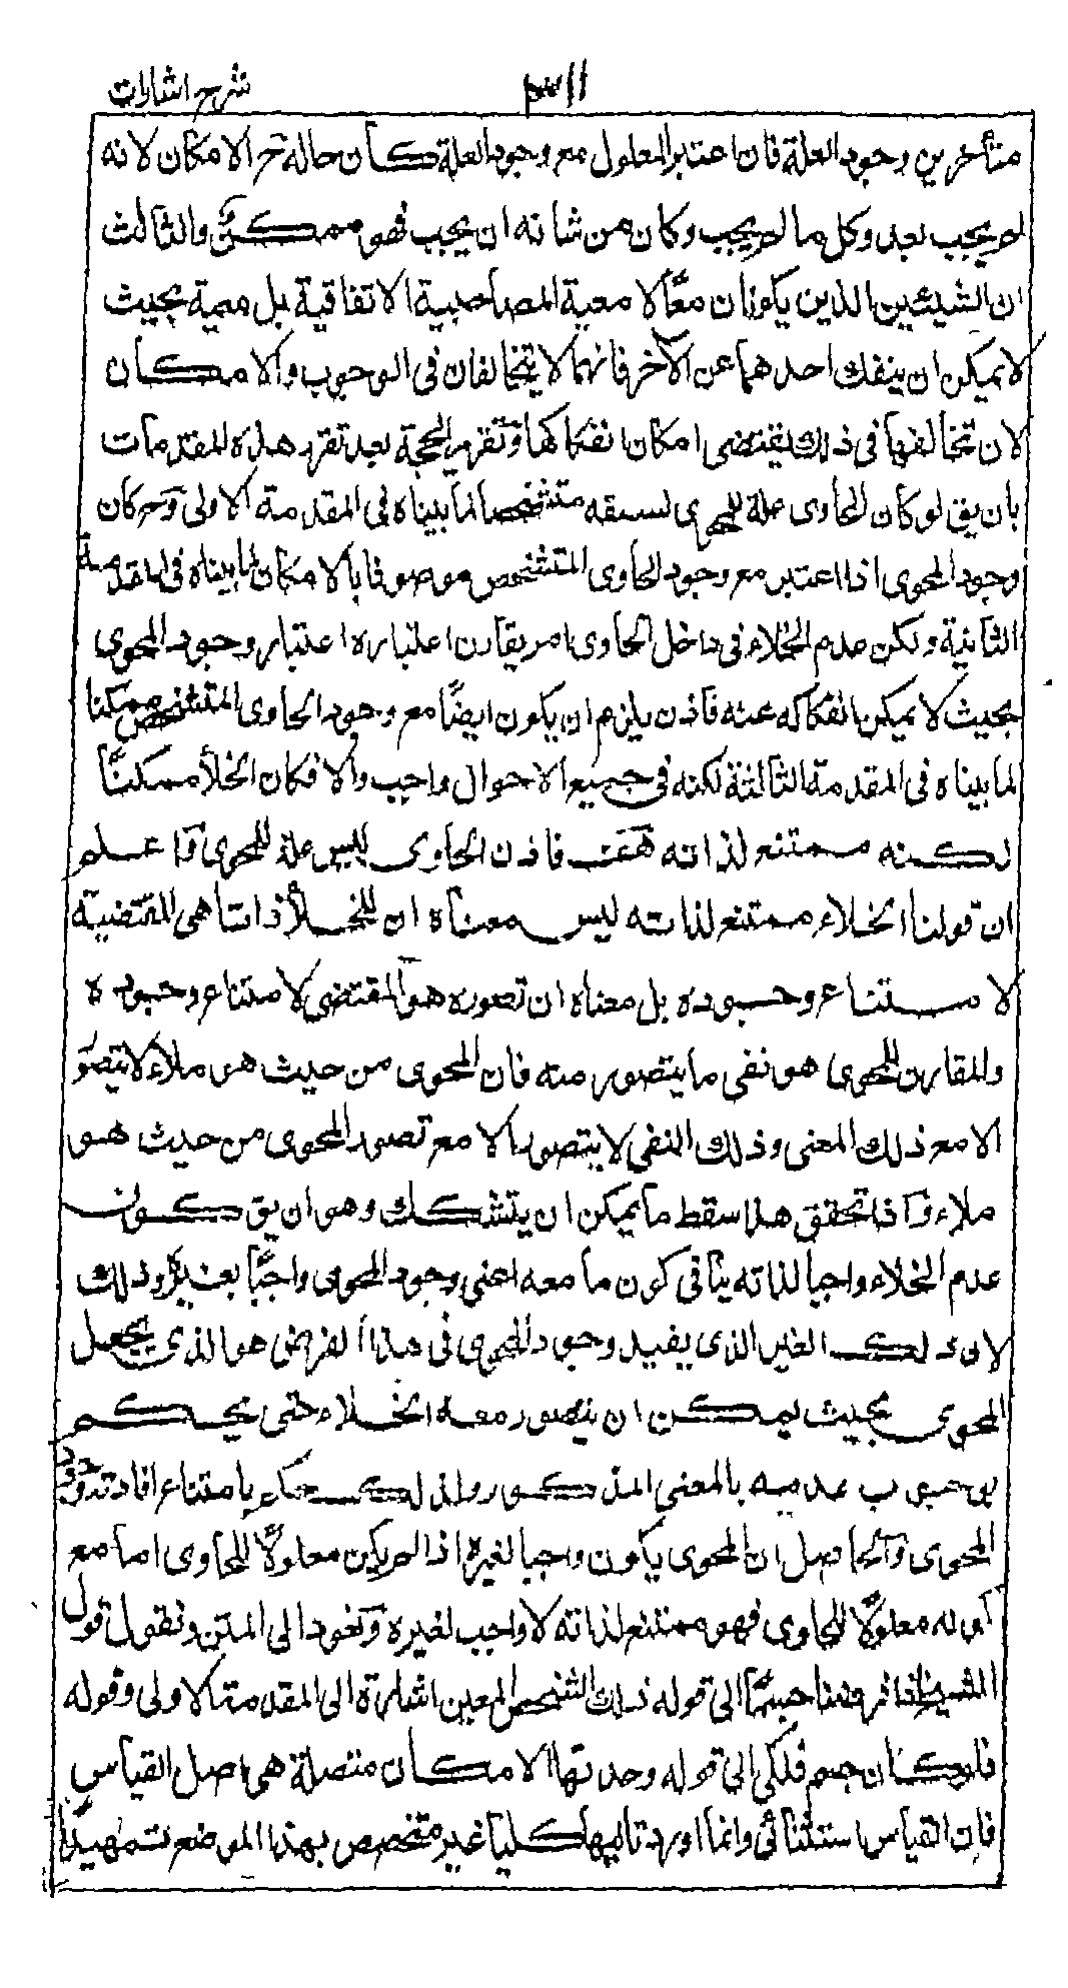 شرح اشارات
٣١١
متأخر عن وجود العلة فان اعتبر المعلول مع وجود العلة كان حاله ح الامكان لانه
لم يجب بعد وكل ما لم يجب وكان من شانه ان يجب فهو ممكن والثالث
ان الشيئين الذين يكونان معًا لا معية المصاحبية الاتفاقية بل معية بحيث
لا يمكن ان ينفك احدهما عن الآخر فانهما لا يتخالفان فى الوجوب والامكان
لان تخالفهما فى ذلك يقتضى امكان انفكاكهما وتقرير الحجة بعد تقرر هذه المقدمات
بان يق لو كان الحاوى علة للمحوى لسبقه متشخصا لما بيناه فى المقدمة الاولى وح كان
وجود المحوى اذا اعتبر مع وجود الحاوى المتشخص موصوفا بالامكان لما بيناه فى المقدمة
الثانية ولكن عدم الخلاء فى داخل الحاوى امر يقارن اعتباره اعتبار وجود المحوى
بحيث لا يمكن انفكاكه عنه فاذن يلزم ان يكون ايضًا مع وجود الحاوى المتشخص ممكنا
لما بيناه فى المقدمة الثالثة لكنه فى جميع الاحوال واجب والا فكان الخلأ ممكنًا
لكنه ممتنع لذاته هف فاذن الحاوى ليس علة للمحوى واعلم
ان قولنا الخلاء ممتنع لذاته ليس معناه ان للخلأ ذاتا هى المقتضية
لامتناع وجوده بل معناه ان تصوره هو المقتضى لامتناع وجوده
والمقارن للمحوى هو نفى ما يتصور منه فان المحوى من حيث هو ملاء لا يتصور
الا مع ذلك المعنى وذلك النفى لا يتصور الا مع تصور المحوى من حيث هو
ملاء واذا تحقق هذا سقط ما يمكن ان يتشكك وهو ان يق كون
عدم الخلاء واجبا لذاته ينافى كون ما معه اعنى وجود المحوى واجبًا بغيره وذلك
لان ذلك الغير الذى يفيد وجود المحوى فى هذا الفرض هو الذى يجعل
المحوى بحيث يمكن ان يتصور معه الخلاء حتى يحكم
بوجوب عدمه بالمعنى المذكور ولذلك حكم بامتناع افادته وجود
المحوى والحاصل ان المحوى يكون واجبا لغيره اذا لم يكن معلولًا للحاوى اما مع
كونه معلولًا للحاوى فهو ممتنع لذاته لا واجب لغيره ونعود الى المتن ونقول قول
الشيخ اذا فرضنا جسمًا الى قوله ذلك الشخص المعين اشارة الى المقدمة الاولى وقوله
فلو كان جسم فلكى الى قوله وجدتها الامكان متصلة هى اصل القياس
فان القياس استثنائى وانما اورد تاليها كليا غير متخصص بهذا الموضع تمهيدًا